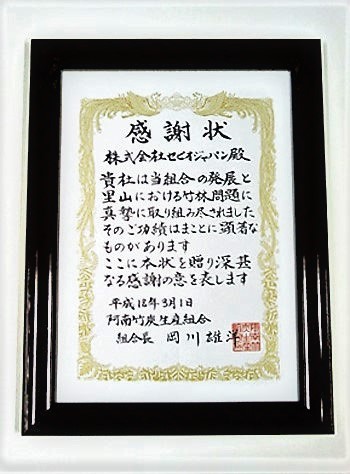 感謝状
株式会社セビオジャパン殿
貴社は当組合の発展と
里山における竹林問題に
真摯に取り組み尽されました
そのご功績はまことに顕著な
ものがあります
ここに本状を贈り深甚
なる感謝の意を表します
平成18年3月1日
阿南竹炭生産組合
組合長 岡川雄洋